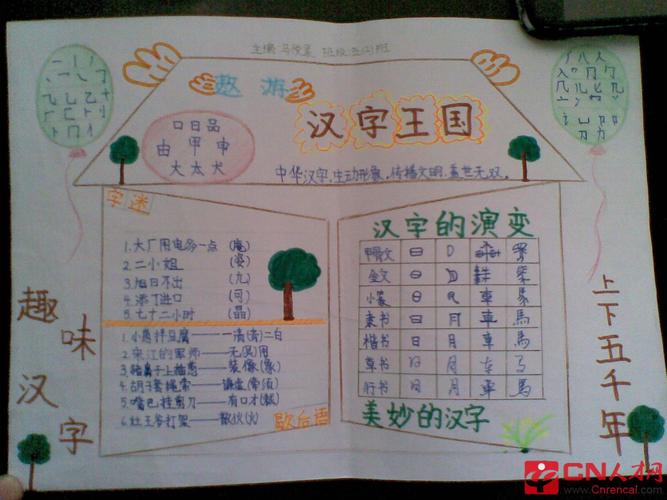 主编 马 班级:五(2)班
遨游
汉字王国
口日品
由甲申
大太犬
中华汉字,生动形象,传播文明,盖世无双。
趣味汉字
上下五千年
字迷
1.大厂用电多一点 (庵)
2.二小姐 (姿)
3.旭日不出 (九)
4.添丁进口 (可)
5.七十二小时 (晶)
1.小葱拌豆腐——一清(青)二白
2.宋江的军师——无(吴)用
3.猪鼻子上插葱——装像(象)
4.胡子套绳索——谦虚(牵须)
5.嘴巴挂剪刀——有口才(裁)
6.灶王爷打架——散伙(火)
歇后语
汉字的演变
甲骨文 日
金文 日
小篆 日 車 馬
隶书 日 月 車 馬
楷书 日 月 車 馬
草书 日 月 车 马
行书 日 月 車 馬
美妙的汉字
CN人才网
Cnrencai.com